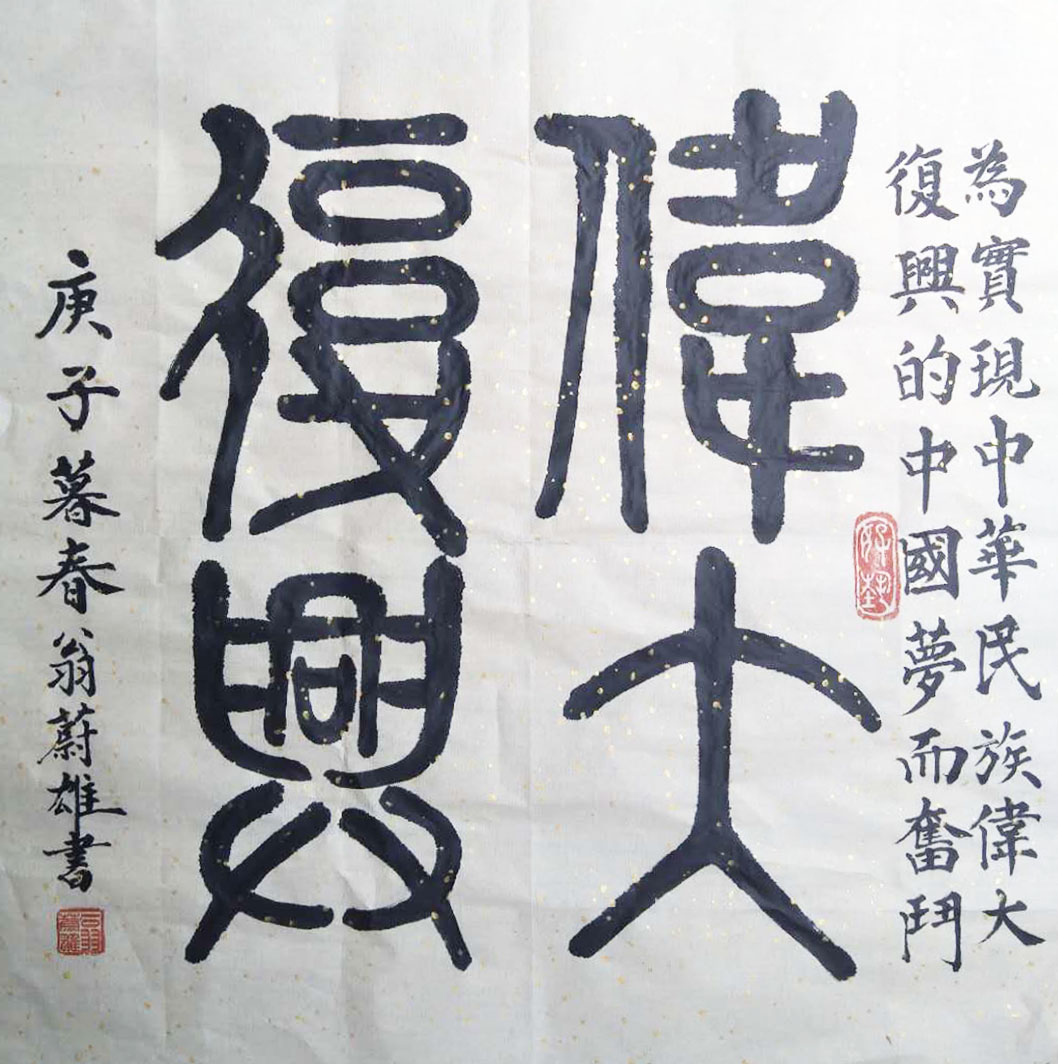 為實現中華民族偉大
復興的中國夢而奮鬥
偉大
復興
庚子暮春翁蔚雄書